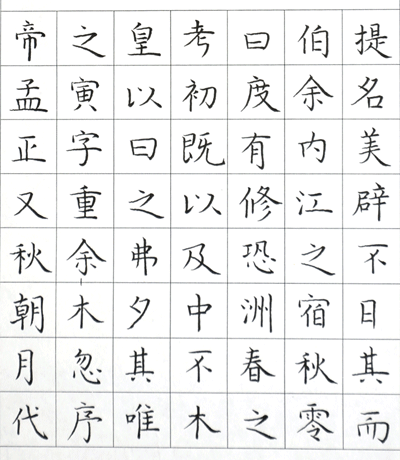 帝之皇考曰伯提
孟寅以初度余名
正字曰既有内美
又重之以修江辟
秋余弗及恐之不
朝木夕中洲宿日
月忽其不春秋其
代序唯木之零而